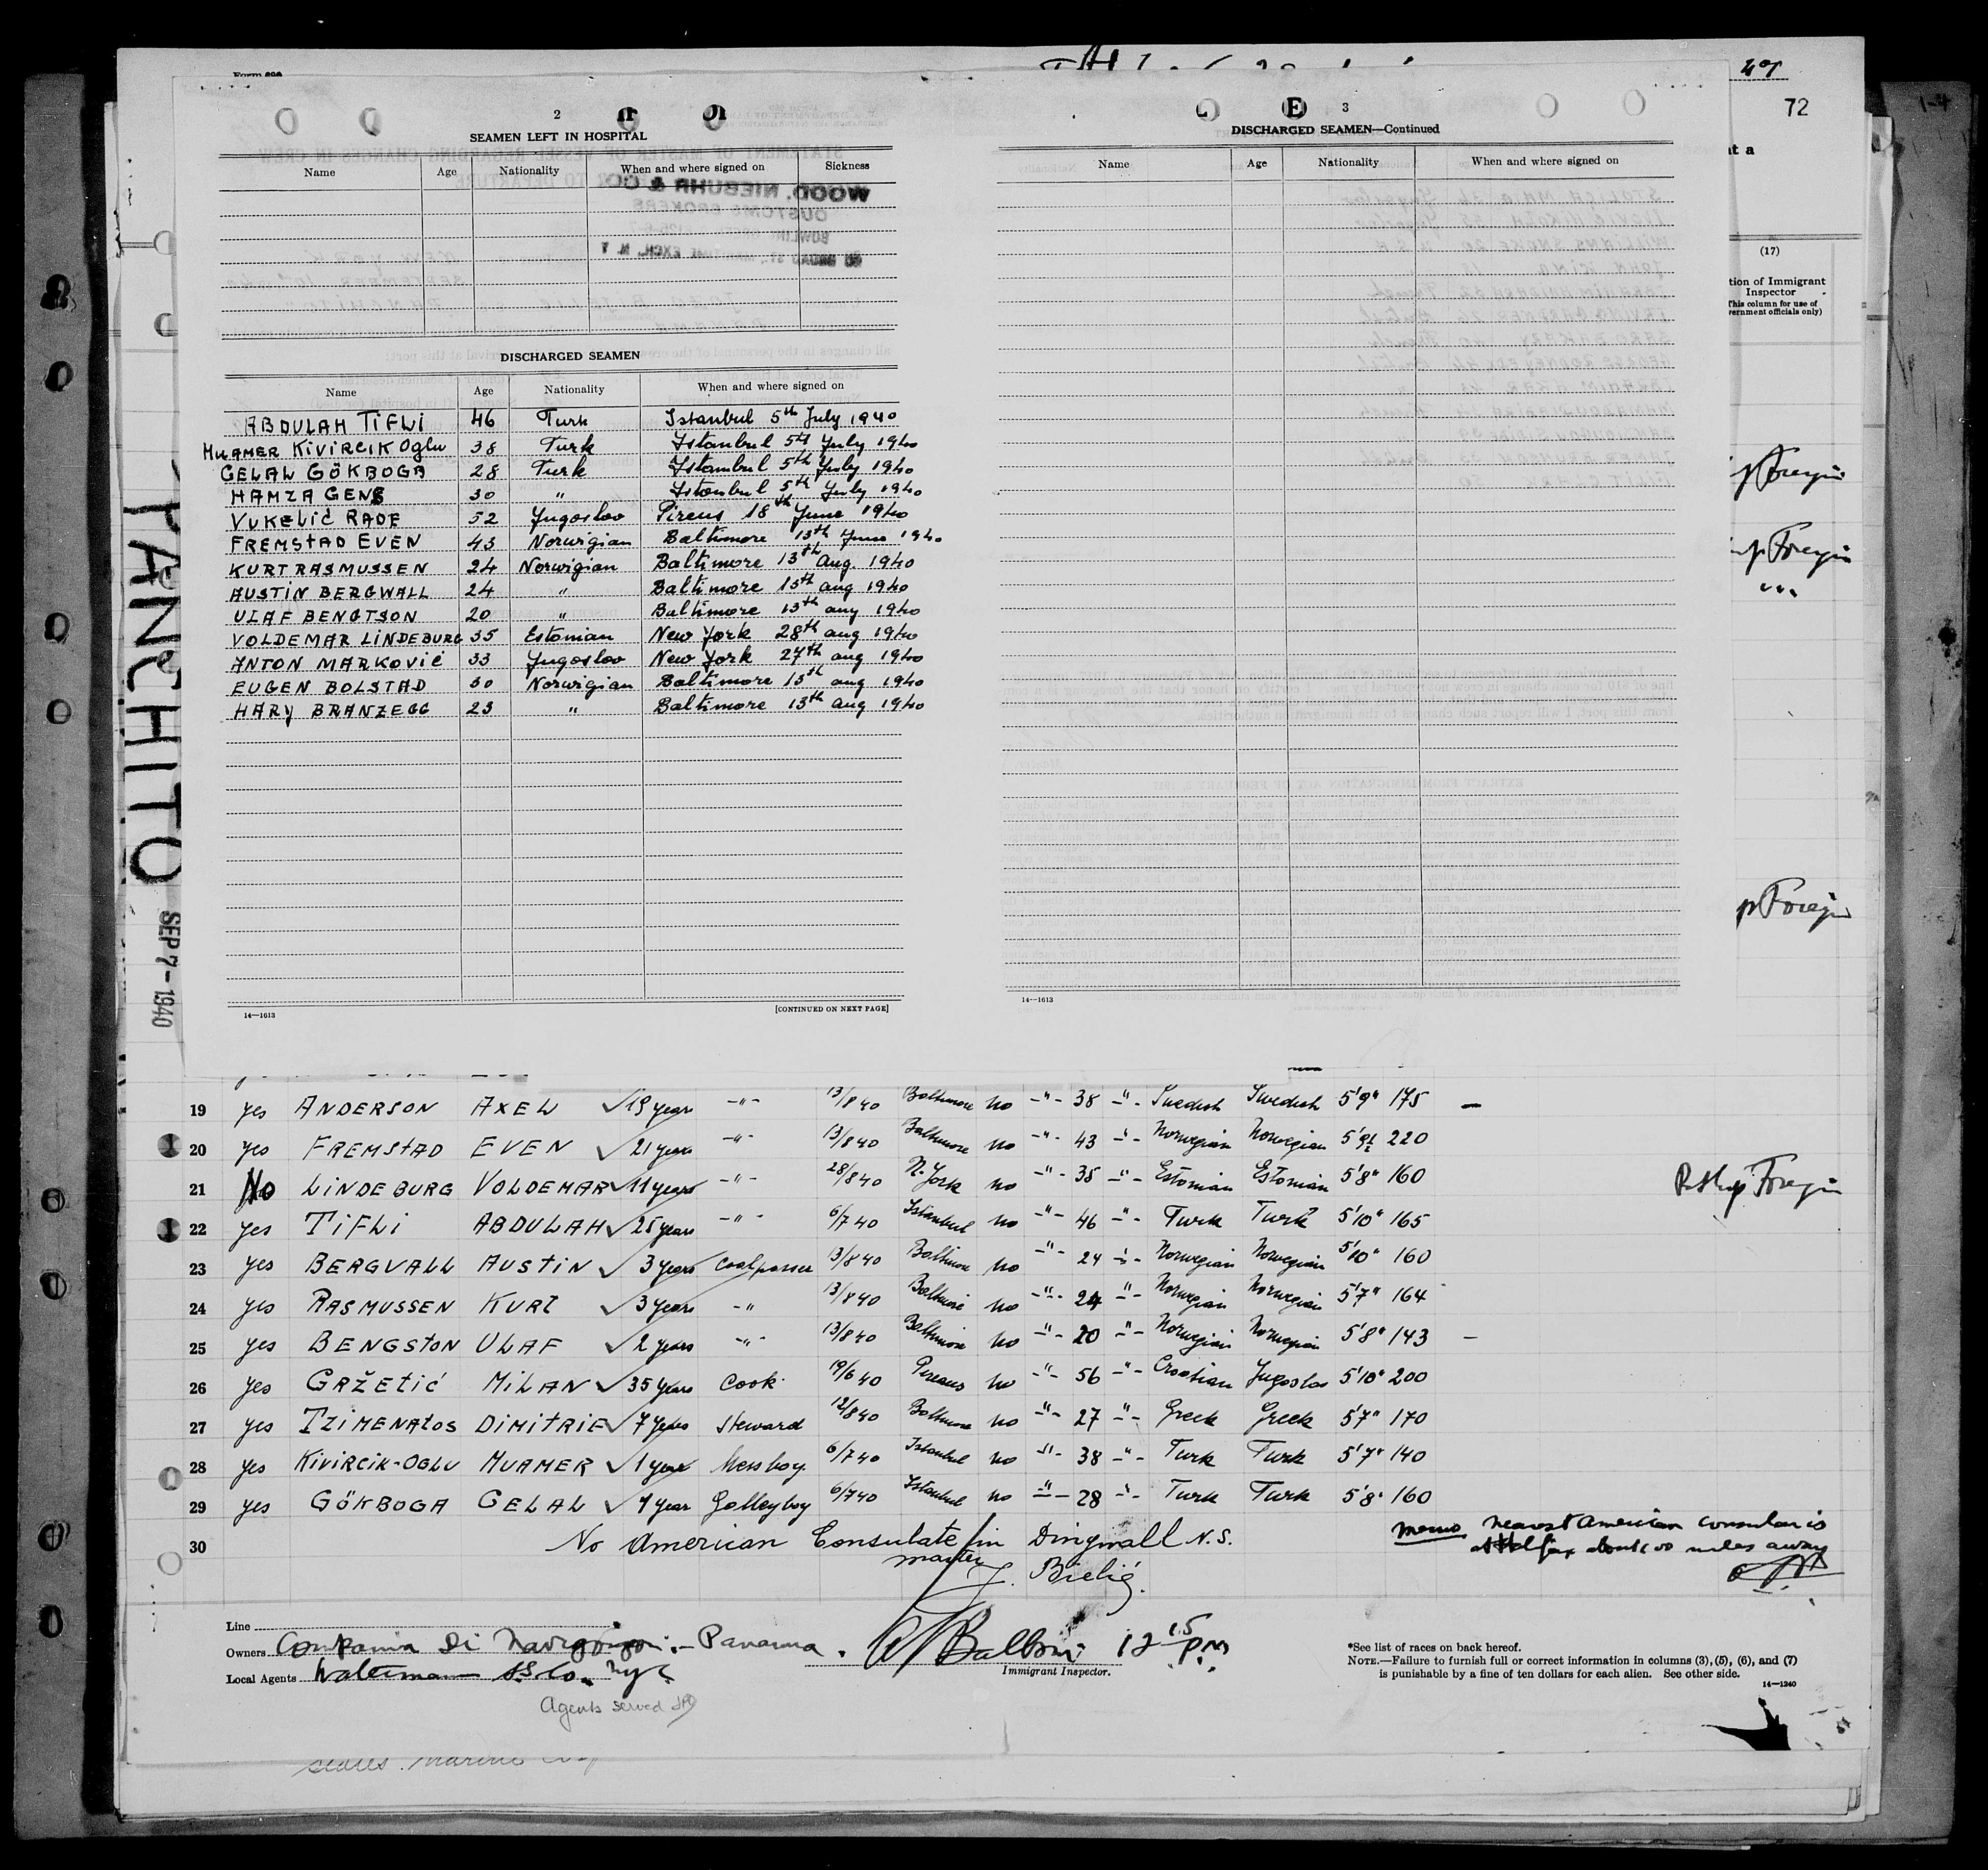 Form 689
47
72
2
SEAMEN LEFT IN HOSPITAL
Name Age Nationality When and where signed on Sickness
WOOD, NIEBUHR & CO.
CUSTOMS BROKERS
DISCHARGED SEAMEN
Name Age Nationality When and where signed on
ABDULAH TIFLI 46 Turk Istanbul 5th July 1940
MUAMER KIVIRCIK Oglu 38 Turk Istanbul 5th July 1940
GELAL GÖKBOGA 28 Turk Istanbul 5th July 1940
HAMZA GENG 30 " Istanbul 5th July 1940
VUKELIĆ RADE 52 Yugoslav Pireus 18th June 1940
FREMSTAD EVEN 43 Norwigian Baltimore 13th June 1940
KURT RASMUSSEN 24 Norwigian Baltimore 13th Aug. 1940
AUSTIN BERGWALL 24 " Baltimore 13th aug 1940
ULAF BENGTSON 20 " Baltimore 13th aug 1940
VOLDEMAR LINDEBURG 35 Estonian New York 28th aug 1940
ANTON MARKOVIĆ 33 Yugoslav New York 27th aug 1940
EUGEN BOLSTAD 30 Norwigian Baltimore 13th aug 1940
HARY BRANZEGG 23 " Baltimore 13th aug 1940
14—1613
[CONTINUED ON NEXT PAGE]
E 3
DISCHARGED SEAMEN—Continued
Name Age Nationality When and where signed on
14—1613
t a
(17)
tion of Immigrant
Inspector
This column for use of
vernment officials only)
p Foreign
p Foreign
"
p Foreign
PANCHITO
SEP 7 - 1940
19 yes ANDERSON AXEL ✓ 19 years -"- 13/8 40 Baltimore no -"- 38 -"- Swedish Swedish 5'9" 175 —
20 yes FREMSTAD EVEN ✓ 21 years -"- 13/8 40 Baltimore no -"- 43 -"- Norwegian Norwegian 5'9½ 220
21 No LINDEBURG VOLDEMAR ✓ 11 years -"- 28/8 40 N. York no -"- 35 -"- Estonian Estonian 5'8" 160 Reship Foreign
22 yes TIFLI ABDULAH ✓ 25 years -"- 6/7 40 Istanbul no -"- 46 -"- Turk Turk 5'10" 165
23 yes BERGVALL AUSTIN ✓ 3 years Coalpasser 13/8 40 Baltimore no -"- 24 -"- Norwegian Norwegian 5'10" 160
24 yes RASMUSSEN KURT ✓ 3 years -"- 13/8 40 Baltimore no -"- 24 -"- Norwegian Norwegian 5'7" 164
25 yes BENGSTON ULAF ✓ 2 years -"- 13/8 40 Baltimore no -"- 20 -"- Norwegian Norwegian 5'8" 143 —
26 yes GRŽETIĆ MILAN ✓ 35 years Cook 19/6 40 Pireaus no -"- 56 -"- Croatian Jugoslav 5'10" 200
27 yes TZIMENATOS DIMITRIE ✓ 7 years Steward 12/8 40 Baltimore no -"- 27 -"- Greek Greek 5'7" 170
28 yes KIVIRCIK-OGLU MUAMER ✓ 1 year Messboy 6/7 40 Istanbul no -"- 38 -"- Turk Turk 5'7" 140
29 yes GÖKBOGA GELAL ✓ 1 year Galleyboy 6/7 40 Istanbul no -"- 28 -"- Turk Turk 5'8" 160
30 No American Consulate in Dingwall N.S.
master J. Bielić.
memo nearest American consular is
at Halfax about 00 miles away
Line
Owners Compania Di Navigazion. - Panama.
Local Agents Waterman SS. Co. nyc
Agents served
Balboni 12 15 pm
Immigrant Inspector.
*See list of races on back hereof.
NOTE.—Failure to furnish full or correct information in columns (3), (5), (6), and (7)
is punishable by a fine of ten dollars for each alien. See other side.
14—1240